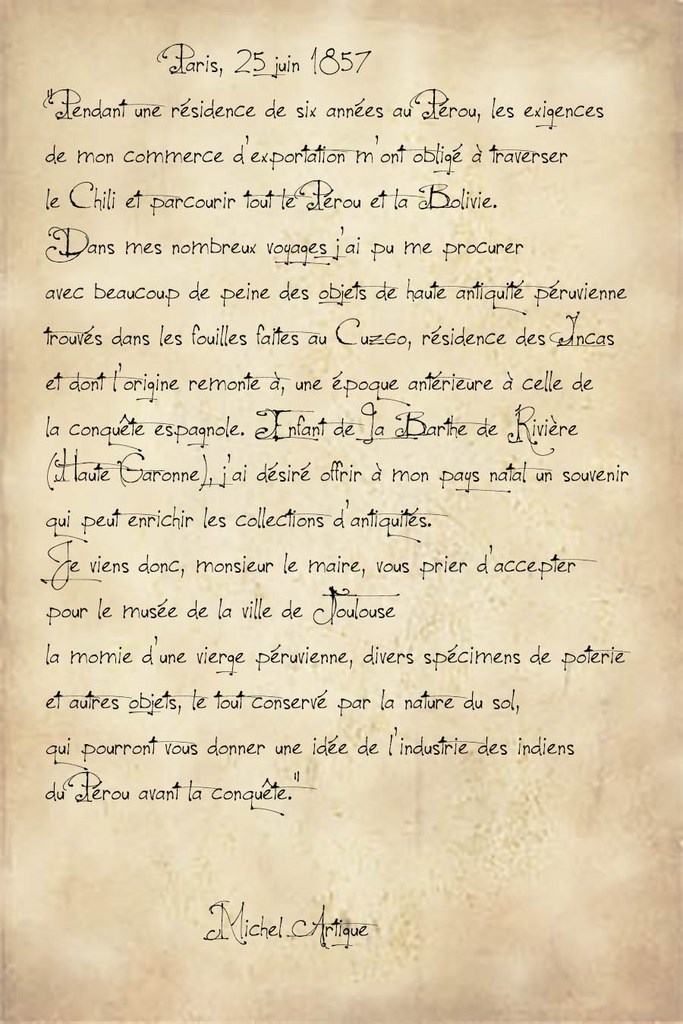 Paris, 25 juin 1857
"Pendant une résidence de six années au Pérou, les exigences
de mon commerce d'exportation m'ont obligé à traverser
le Chili et parcourir tout le Pérou et la Bolivie.
Dans mes nombreux voyages j'ai pu me procurer
avec beaucoup de peine des objets de haute antiquité péruvienne
trouvés dans les fouilles faites au Cuzco, résidence des Incas
et dont l'origine remonte à, une époque antérieure à celle de
la conquête espagnole. Enfant de la Barthe de Rivière
(Haute Garonne), j'ai désiré offrir à mon pays natal un souvenir
qui peut enrichir les collections d'antiquités.
Je viens donc, monsieur le maire, vous prier d'accepter
pour le musée de la ville de Toulouse
la momie d'une vierge péruvienne, divers spécimens de poterie
et autres objets, le tout conservé par la nature du sol,
qui pourront vous donner une idée de l'industrie des indiens
du Pérou avant la conquête."
Michel Artigue